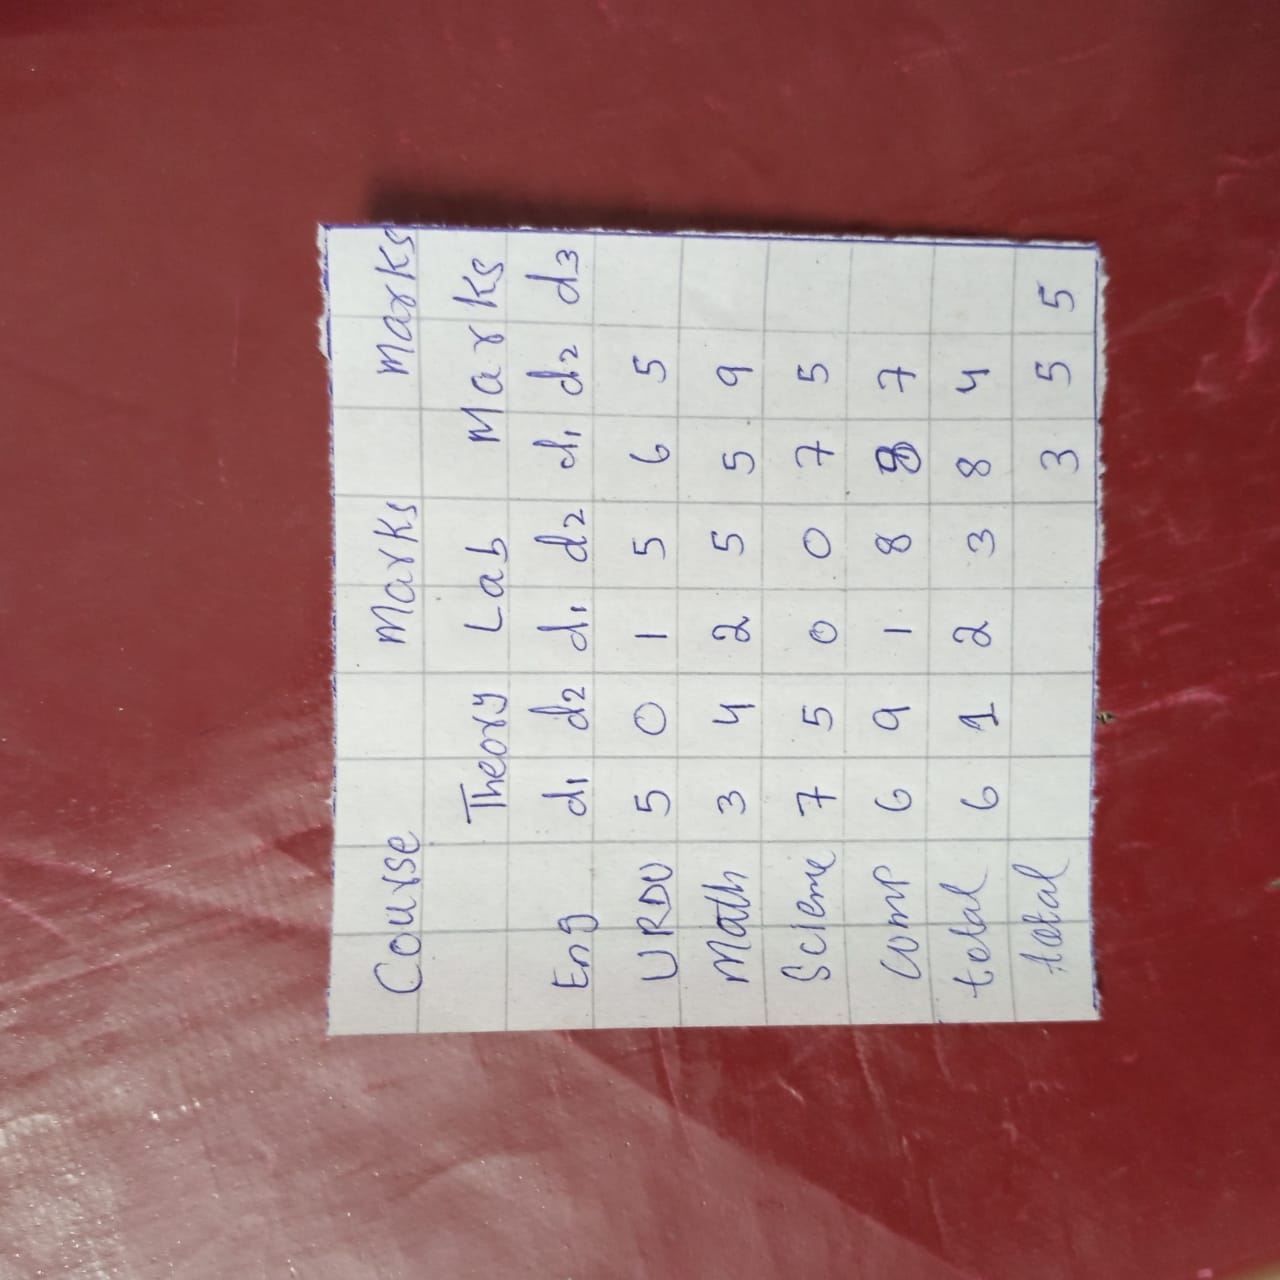 Course Marks Marks
Theory Lab Marks
Eng d1 d2 d1 d2 d1 d2 d3
URDU 5 0 1 5 6 5
Math 3 4 2 5 5 9
Scieme 7 5 0 0 7 5
Comp 6 9 1 8 8 7
total 6 1 2 3 8 4
total 3 5 5